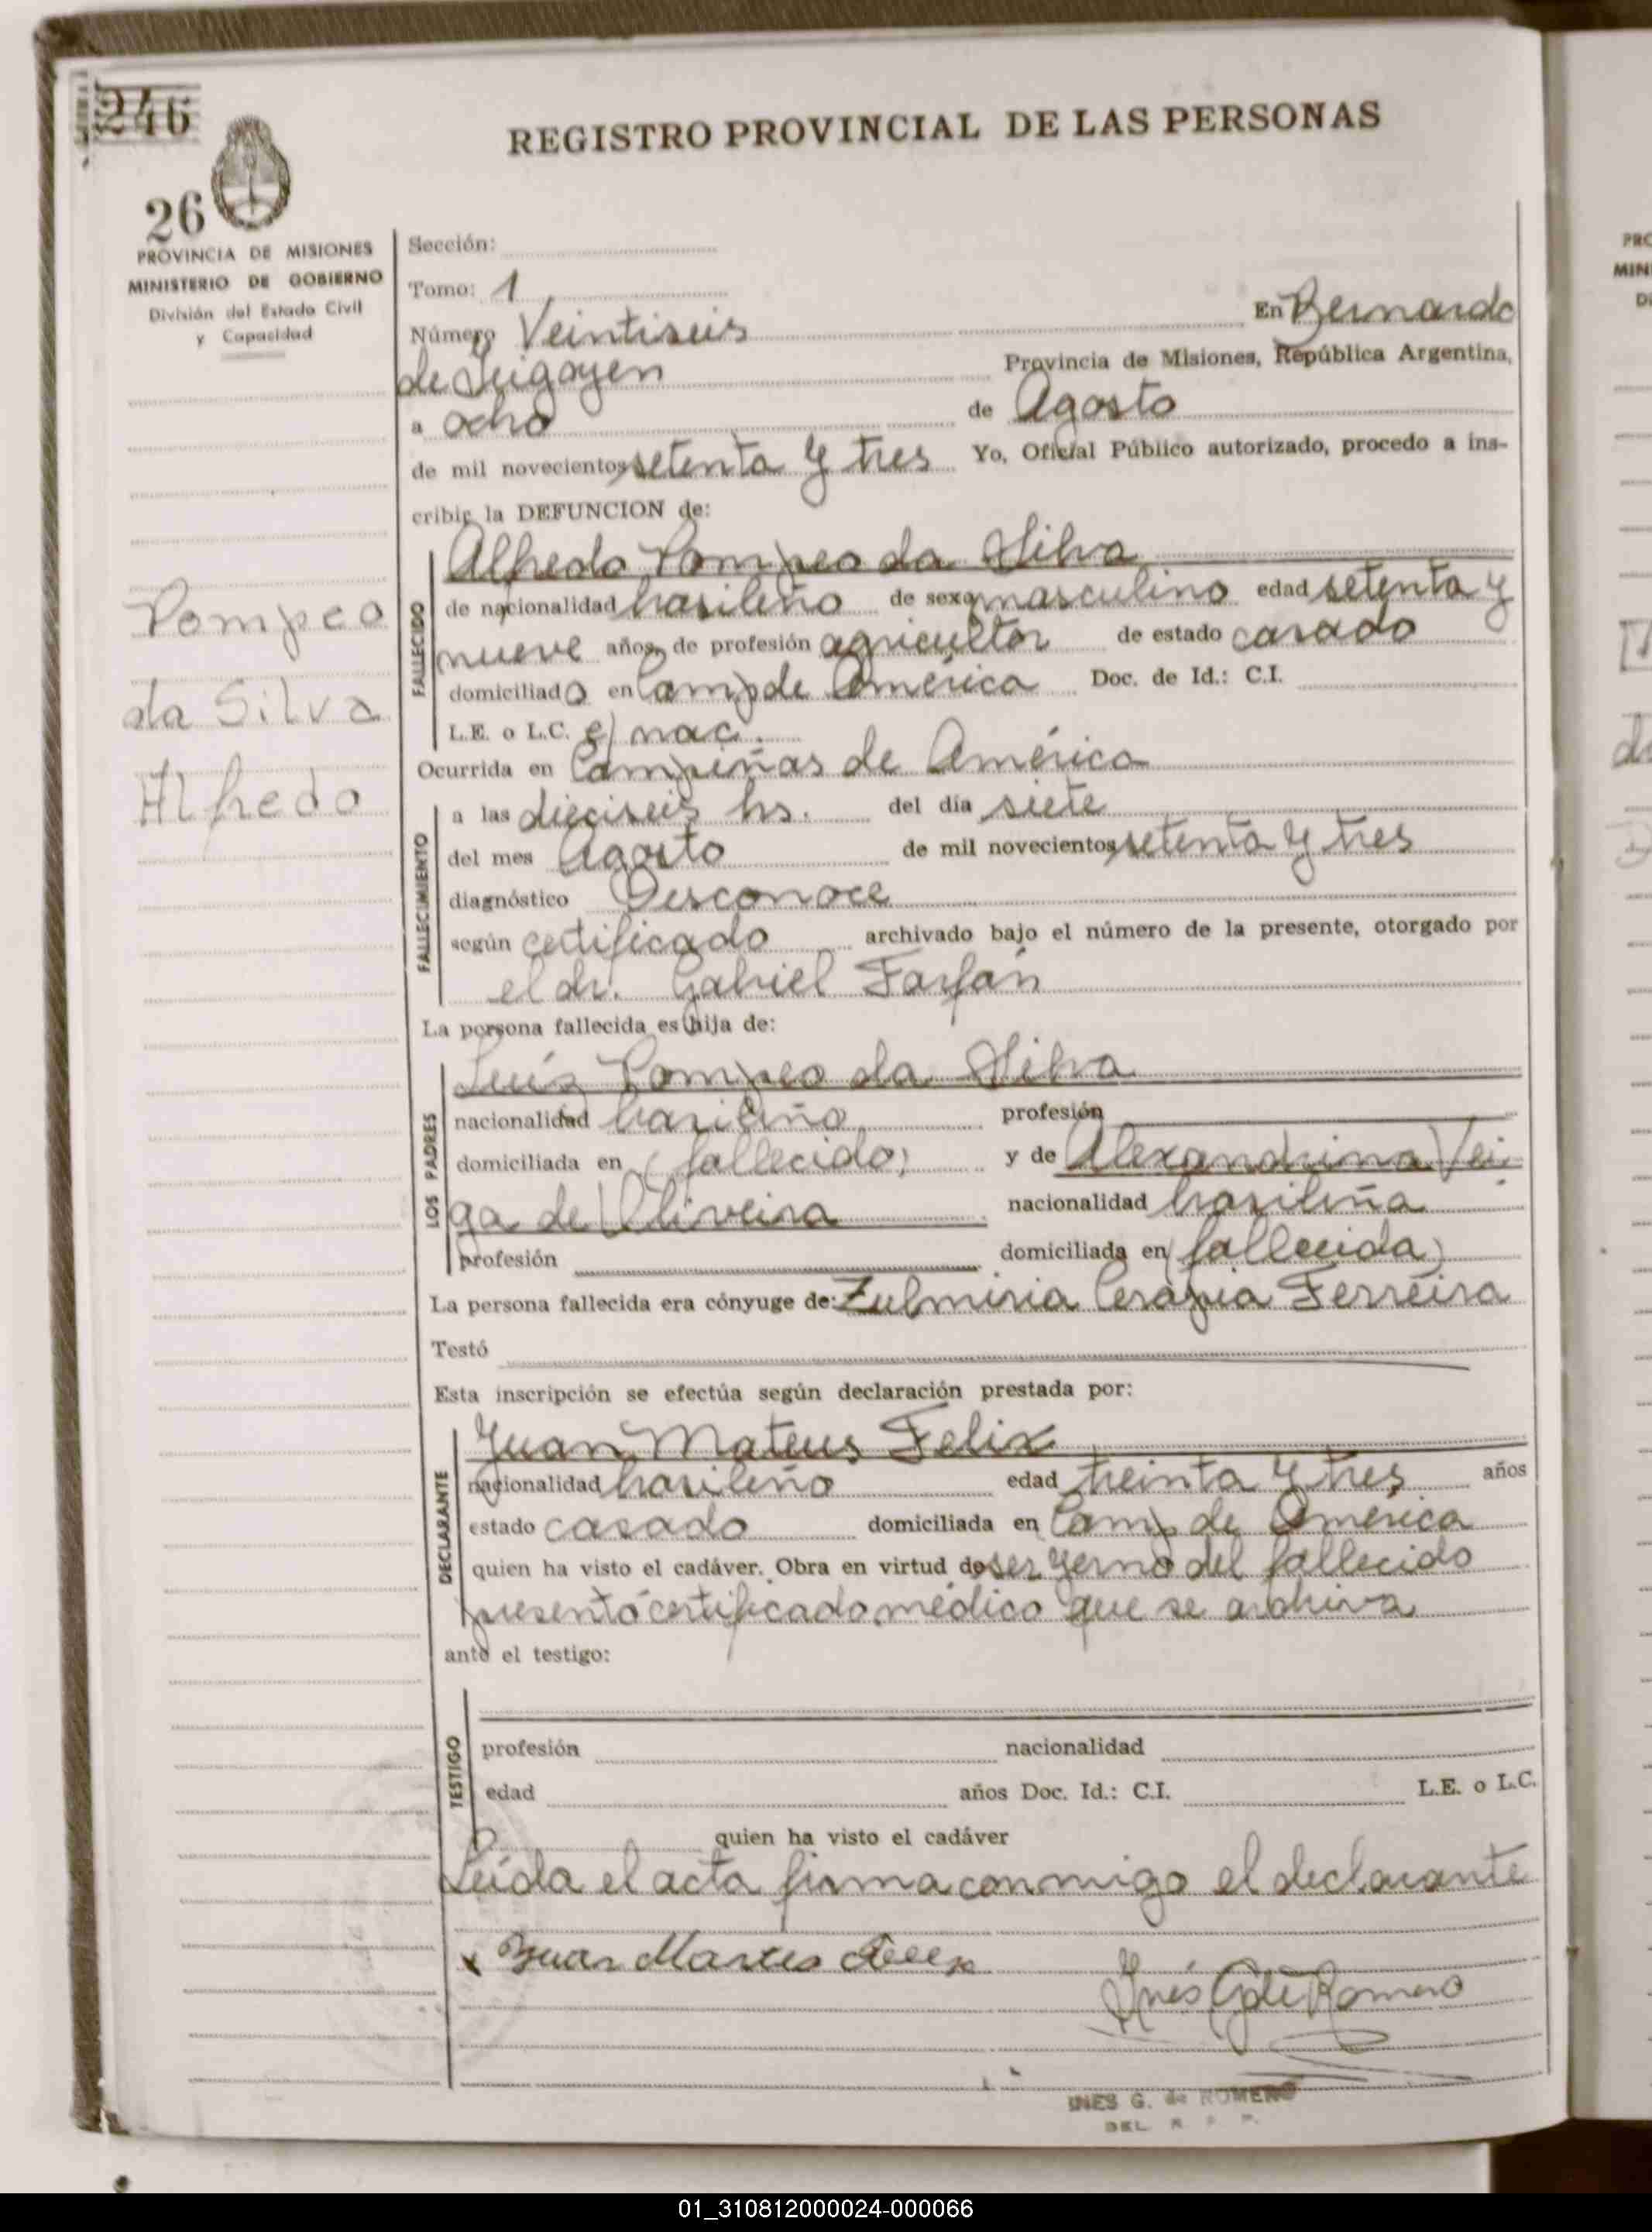 246
REGISTRO PROVINCIAL DE LAS PERSONAS
26
PROVINCIA DE MISIONES
MINISTERIO DE GOBIERNO
División del Estado Civil
y Capacidad
Pompeo
da Silva
Alfredo
Sección:
Tomo: 1
Número Veintiseis En Bernardo
de Irigoyen Provincia de Misiones, República Argentina,
a ocho de Agosto
de mil novecientos setenta y tres Yo, Oficial Público autorizado, procedo a ins-
cribir la DEFUNCION de:
FALLECIDO
Alfredo Pompeo da Silva
de nacionalidad brasileño de sexo masculino edad setenta y
nueve años, de profesión agricultor de estado casado
domiciliado en Camp de América Doc. de Id.: C.I.
L.E. o L.C. e/ nac.
Ocurrida en Campiñas de América
FALLECIMIENTO
a las dieciseis hs. del día siete
del mes Agosto de mil novecientos setenta y tres
diagnóstico Desconoce
según certificado archivado bajo el número de la presente, otorgado por
el dr. Gabriel Farfán
La persona fallecida es hija de:
LOS PADRES
Luís Pompeo da Silva
nacionalidad brasileño profesión
domiciliada en (fallecido) y de Alexandrina Vei-
ga de Oliveira nacionalidad brasileña
profesión domiciliada en (fallecida)
La persona fallecida era cónyuge de: Zulmiria Cerapia Ferreira
Testó
Esta inscripción se efectúa según declaración prestada por:
DECLARANTE
Juan Mateus Felix
nacionalidad brasileño edad treinta y tres años
estado casado domiciliada en Camp de América
quien ha visto el cadáver. Obra en virtud de ser yerno del fallecido
presentó certificado médico que se archiva
ante el testigo:
TESTIGO
profesión nacionalidad
edad años Doc. Id.: C.I. L.E. o L.C.
quien ha visto el cadáver
Leída el acta firma conmigo el declarante
x Juan Mateus Felix
Inés G de Romero
INES G. de ROMERO
DEL R. P. P.
01_310812000024-000066